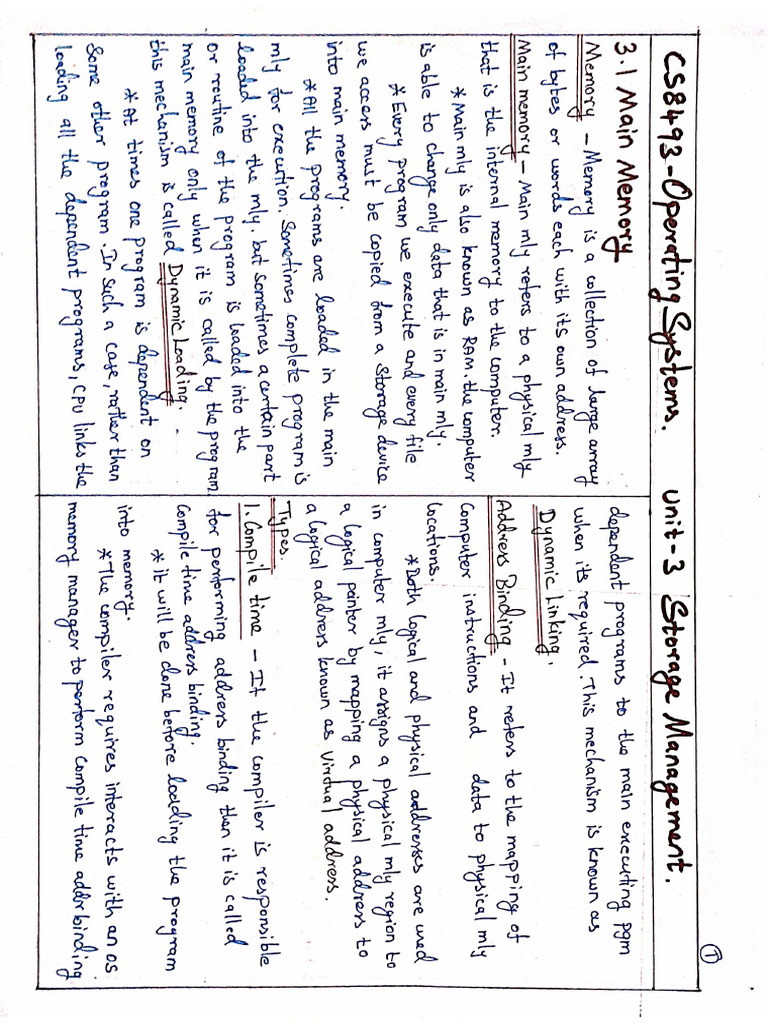 ①
CS8493-Operating Systems. Unit-3 Storage Management.
3.1 Main Memory
Memory - Memory is a collection of large array
of bytes or words each with its own address.
Main memory - Main mly refers to a physical mly
that is the internal memory to the computer.
* Main mly is also known as RAM. the computer
is able to change only data that is in main mly.
* Every program we execute and every file
we access must be copied from a storage device
into main memory.
* All the programs are loaded in the main
mly for execution. Sometimes complete program is
loaded into the mly. but sometimes a certain part
or routine of the program is loaded into the
main memory only when it is called by the program
this mechanism is called Dynamic Loading.
* At times one program is dependent on
Some other program. In such a case, rather than
loading all the dependent programs, CPU links the
dependent programs to the main executing pgm
when its required. This mechanism is known as
Dynamic Linking.
Address Binding - It refers to the mapping of
Computer instructions and data to physical mly
locations.
* Both logical and physical addresses are used
in computer mly, it assigns a physical mly region to
a logical pointer by mapping a physical address to
a logical address known as Virtual address.
Types.
1. Compile time - If the compiler is responsible
for performing address binding then it is called
Compile time address binding.
* it will be done before loading the program
into memory.
* The compiler requires interacts with an os
memory manager to perform compile time addr binding